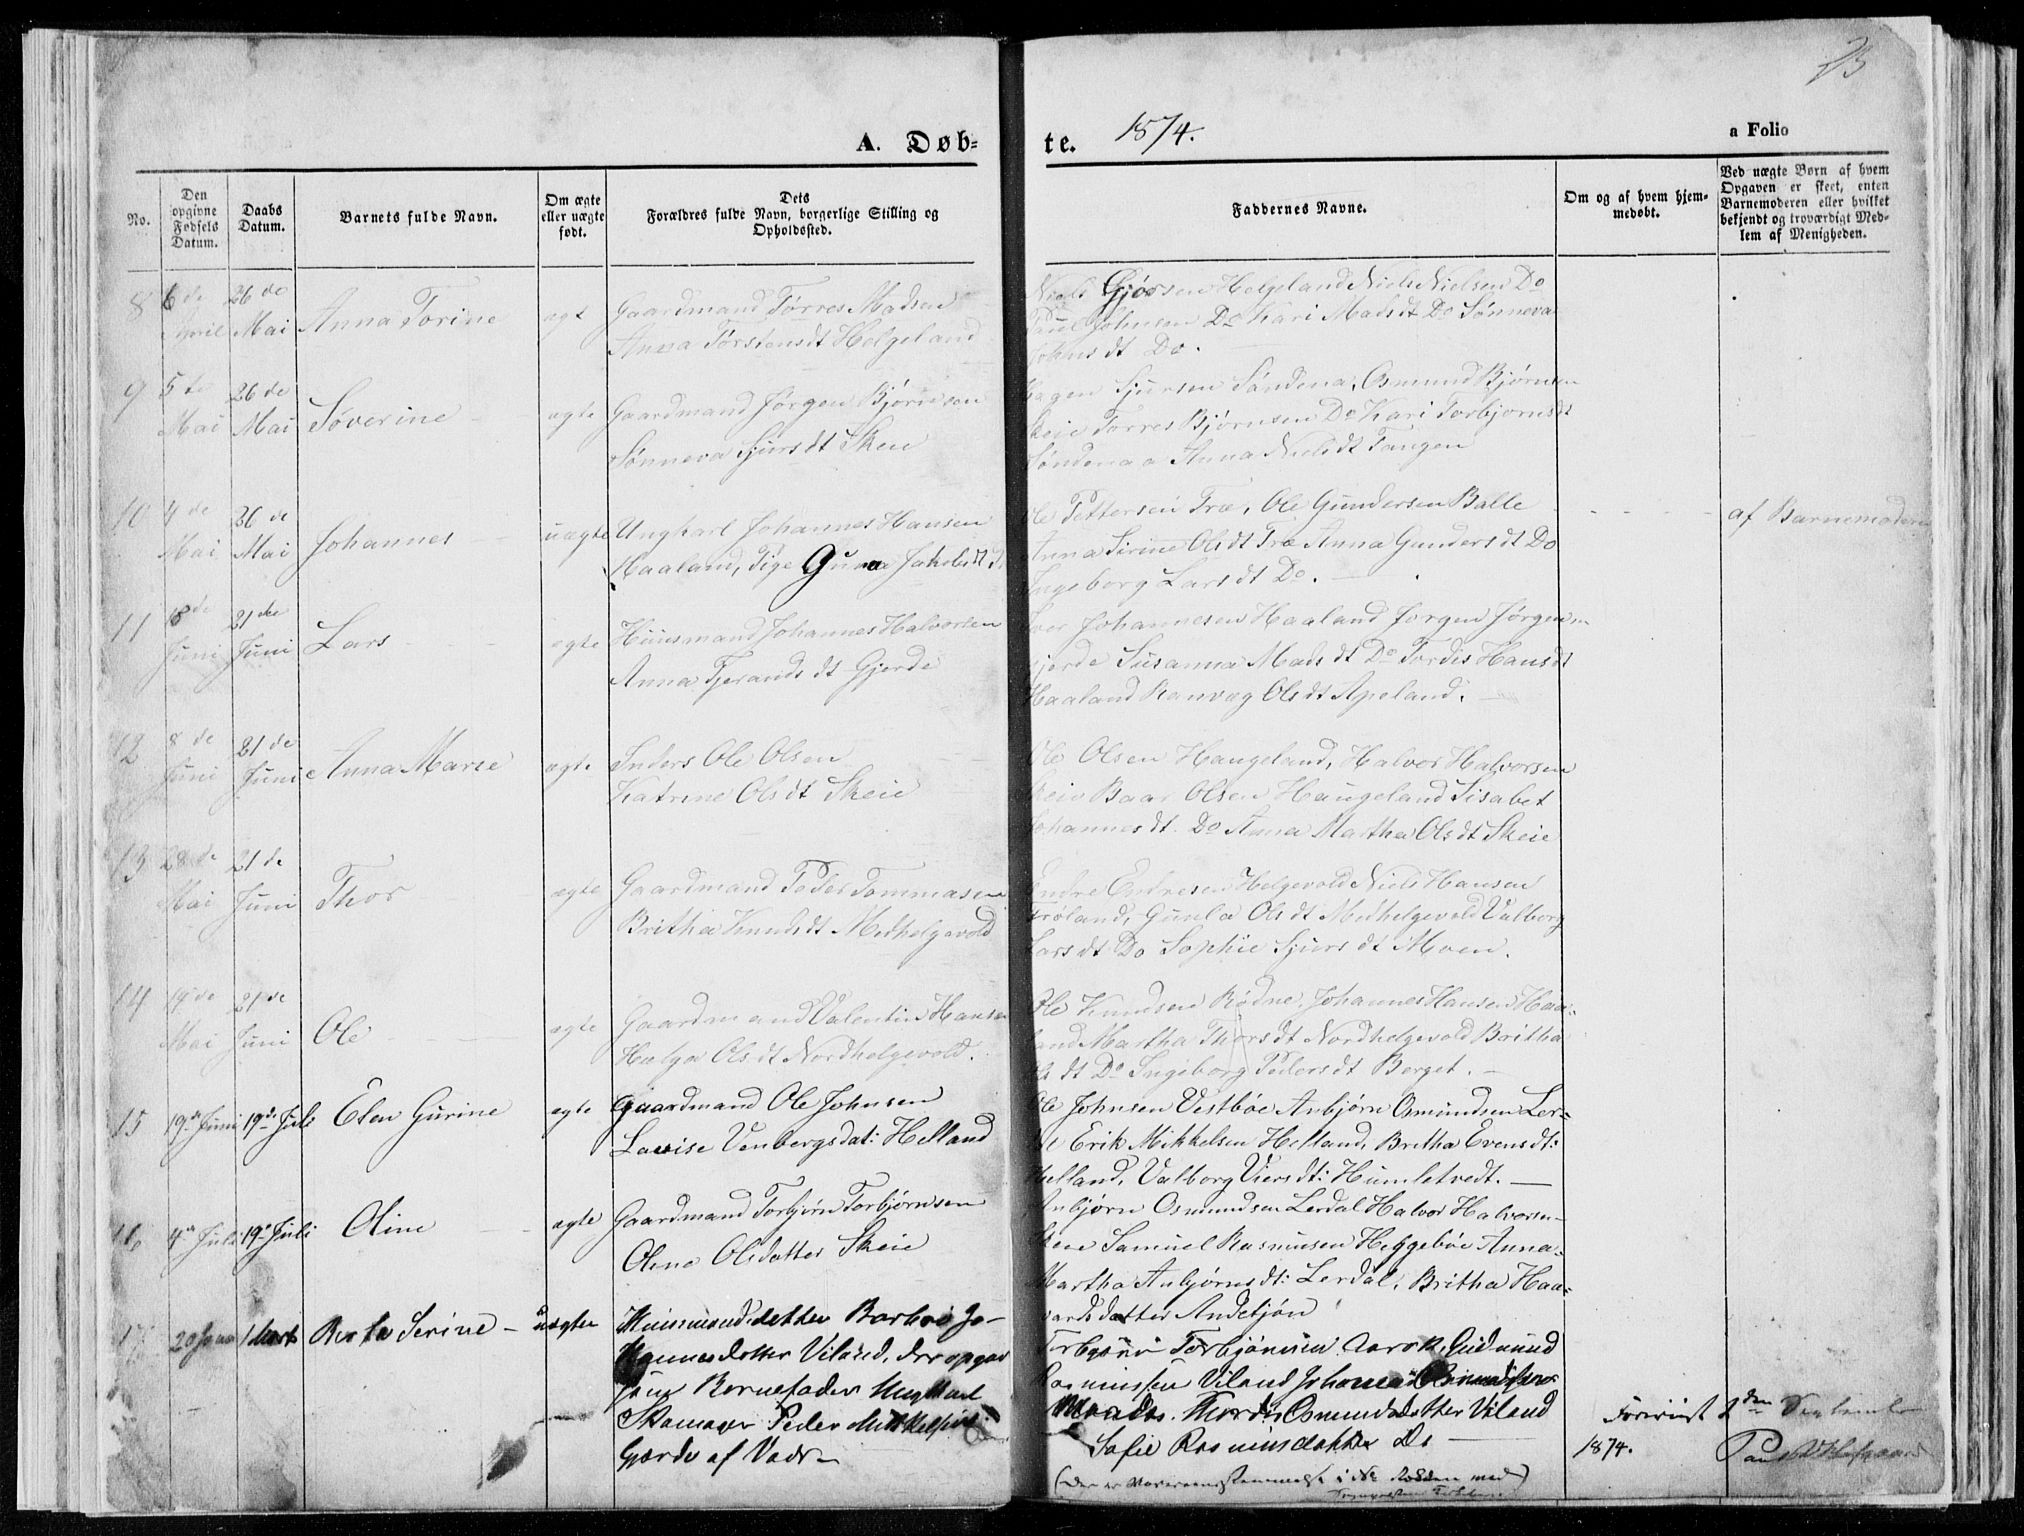 23
A. Døb-
te. 1874.
a Folio
No.
Den opgivne Fødsels Datum.
Daabs Datum.
Barnets fulde Navn.
Om ægte eller uægte født.
Dets
Forældres fulde Navn, borgerlige Stilling og
Opholdssted.
Faddernes Navne.
Om og af hvem hjem-
medøbt.
Ved uægte Børn af hvem
Opgaven er skeet, enten
Barnemoderen eller hvilket
bekjendt og troværdigt Med-
lem af Menigheden.
8 6de April 26de Mai Anna Torine ægt
Gaardmand Tørres Madsen
Anna Torstensdt Helgeland
Niels Gjøssen Helgeland Niels Nielsen Do
Poul Johnsen Do Kari Madsdt Do Sønneva
Johnsdt Do.
9 5te Mai 26de Mai Søverine ægte
Gaardmand Jørgen Bjørnson
Sønneva Sjursdt Skeie
Hagen Sjursen Søndena, Osmund Bjørnsen
Skeie Torres Bjørnsen Do Kari Torbjørnsdt
Søndenaa Anna Nielsdt Tangen
10 4de Mai 26de Mai Johannes uægte
Ungkarl Johannes Hansen
Haaland, Pige Guna Jakobsdt
Ole Pettersen Træ, Ole Gundersen Balle
Anna Sirine Olsdt Træ Anna Gundersdt Do
Ingeborg Larsdt Do.
af Barnemoderen
11 18de Juni 21de Juni Lars ægte
Huusmand Johannes Halvorsen
Anna Tjerandsdt Gjerde
Iver Johannesen Haaland Jørgen Jørgensen
Gjerde Susanna Madsdt Do Tordis Hansdt
Haaland Ranvæg Olsdt Apeland.
12 8de Juni 21de Juni Anna Marie ægte
Inders Ole Olsen
Katrine Olsdt Skeie
Ole Olsen Haugeland, Halvor Halvorsen
Skeie Baar Olsen Haugeland Lisabet
Johannesdt Do Anna Martha Olsdt Skeie
13 28de Mai 21de Juni Thor ægte
Gaardmand Peder Tommasen
Britha Knudsdt Medhelgevold
Endre Endresen Helgevold Niels Hansen
Frøland, Gunla Olsdt Medhelgevold Valborg
Larsdt Do Sophie Sjursdt Moen.
14 19de Mai 21de Juni Ole ægte
Gaardmand Valentin Hansen
Helga Olsdt Nordhelgevold.
Ole Knudsen Rødne, Johannes Hansen Haa-
land Martha Thorsdt Nordhelgevold Britha
Olsdt Do Ingeborg Pedersdt Berget.
15 19de Juni 19de Juli Elen Gurine ægte
Gaardmand Ole Johnsen
Lovise Venbergsdat: Helland
Ole Johnsen Vestbøe Anbjørn Osmundsen Ler-
dal Erik Mikkelsen Helland, Britha Evensdt:
Helland, Valborg Viersdt: Humletvedt.
16 4de Juli 19de Juli Oline ægte
Gaardmand Torbjørn Torbjørnsen
Olena Olsdatter Skeie
Anbjørn Osmundsen Lerdal Halvor Halvorsen
Skeie Samuel Rasmussen Heggebøe Anna
Martha Anbjørnsdt: Lerdal, Britha Haa-
vardsdatter Andetjøn
17 20 Januar 1 Marts Berta Serine uægte
Huusmandsdatter Barbro Jo-
hannesdatter Viland, der opgav
som Barnefader Ungkarl
Skomager Peder Mikkelsen
Gjerde af Vads
Torbjørn Torbjørnsen Aarok, Gudmund
Rasmussen Viland Johannes Osmundsen
Thordis Osmundsdatter Viland
Sofie Rasmusdatter Do
Forevist 2den September
1874.